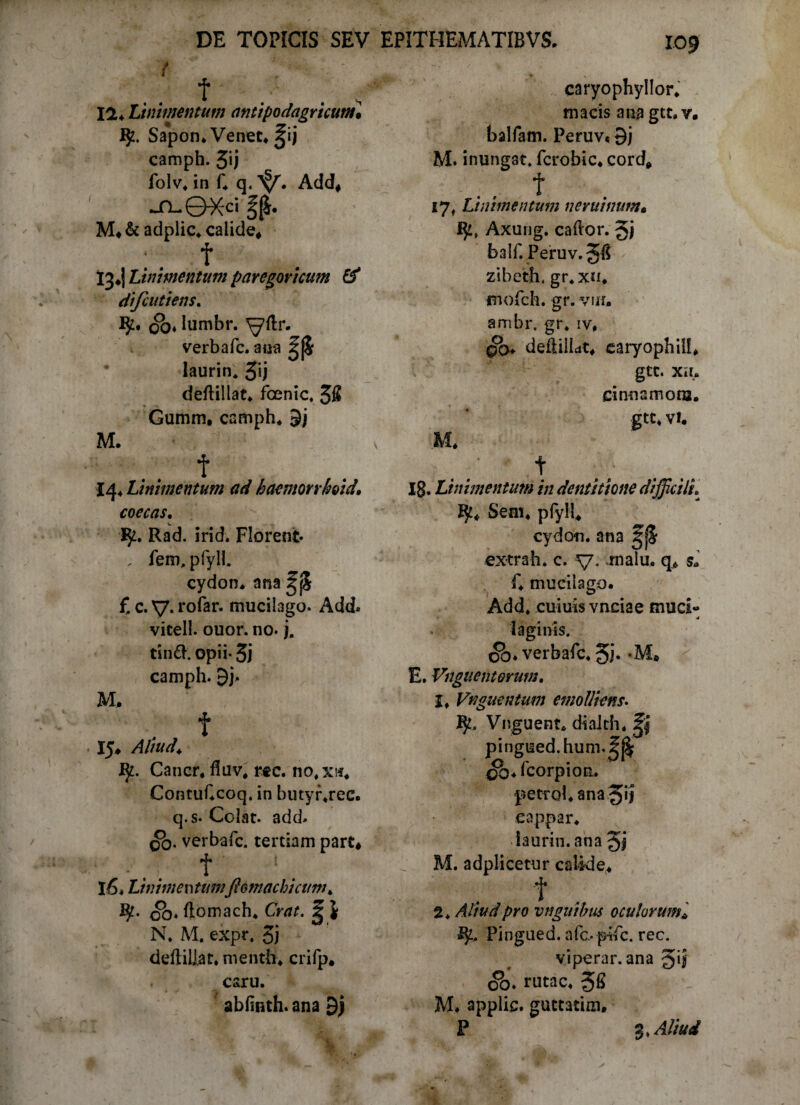 DE TOPICIS SEV EPITHEMATIBVS. 109
†
12. Linimentum antipodagricum.
℞. Sapon. Venet. ℥ij
camph. ʒij
ſolv. in ſ. q. Add.
ci ℥ß.
M. & adplic. calide.
†
13. Linimentum paregoricum &
diſcutiens.
℞. lumbr. ▽ſtr.
verbaſc. ana ℥ß
laurin. ʒij
deſtillat. foenic. ʒß
Gumm. camph. ℈j
M.
†
14. Linimentum ad haemorrhoid.
coecas.
℞. Rad. irid. Florent.
ſem. pſyll.
cydon. ana ℥ß
f. c. ▽. roſar. mucilago. Add.
vitell. ouor. no. j.
tinct. opii. ʒj
camph. ℈j.
M.
†
15. Aliud.
℞. Cancr. fluv. rec. no. xii.
Contuſ. coq. in butyr. rec.
q. s. Colat. add.
verbaſc. tertiam part.
†
16. Linimentum ſtomachicum.
℞. ſtomach. Crat. ℥
N. M. expr. ʒj
deſtillat. menth. criſp.
caru.
abſinth. ana ℈j
caryophyllor.
macis ana gtt. v.
balſam. Peruv. ℈j
M. inungat. ſcrobic. cord.
†
17. Linimentum neruinum.
℞. Axung. caſtor. ʒj
balſ. Peruv. ʒß
zibeth. gr. xii.
moſch. gr. viii.
ambr. gr. iv.
deſtillat. caryophill.
gtt. xii.
cinnamom.
gtt. vi.
M.
†
18. Linimentum in dentitione difficili.
℞. Sem. pſyll.
cydon. ana ℥ß
extrah. c. ▽. malu. q. s.
f. mucilago.
Add. cuiuis vnciae muci-
laginis.
verbaſc. ʒj. M.
E. Vnguentorum.
1. Vnguentum emolliens.
℞. Vnguent. dialth. ℥j
pingued. hum. ℥ß
ſcorpion.
petrol. ana ʒij
cappar.
laurin. ana ʒj
M. adplicetur calide.
†
2. Aliud pro vnguibus oculorum.
℞. Pingued. aſc. piſc. rec.
viperar. ana ʒij
rutac. ʒß
M. applic. guttatim.
P 3. Aliud